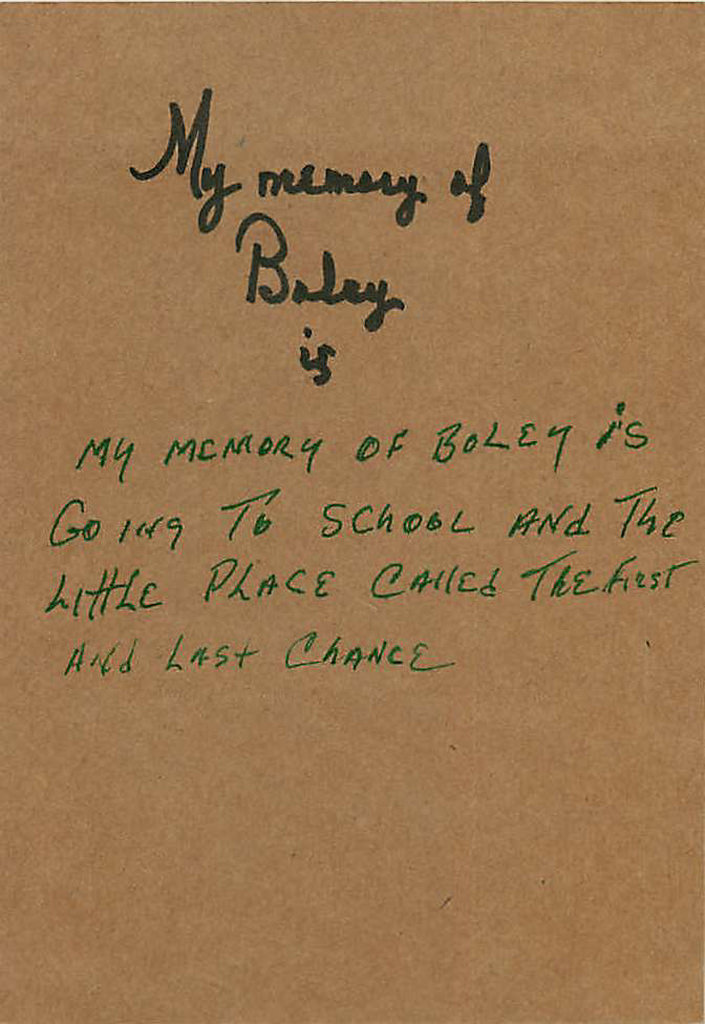 My memory of
Boley
is
MY MEMORY OF BOLEY iS
GOING TO SCHOOL AND THE
LITTLE PLACE CALLED THE First
AND LAST CHANCE